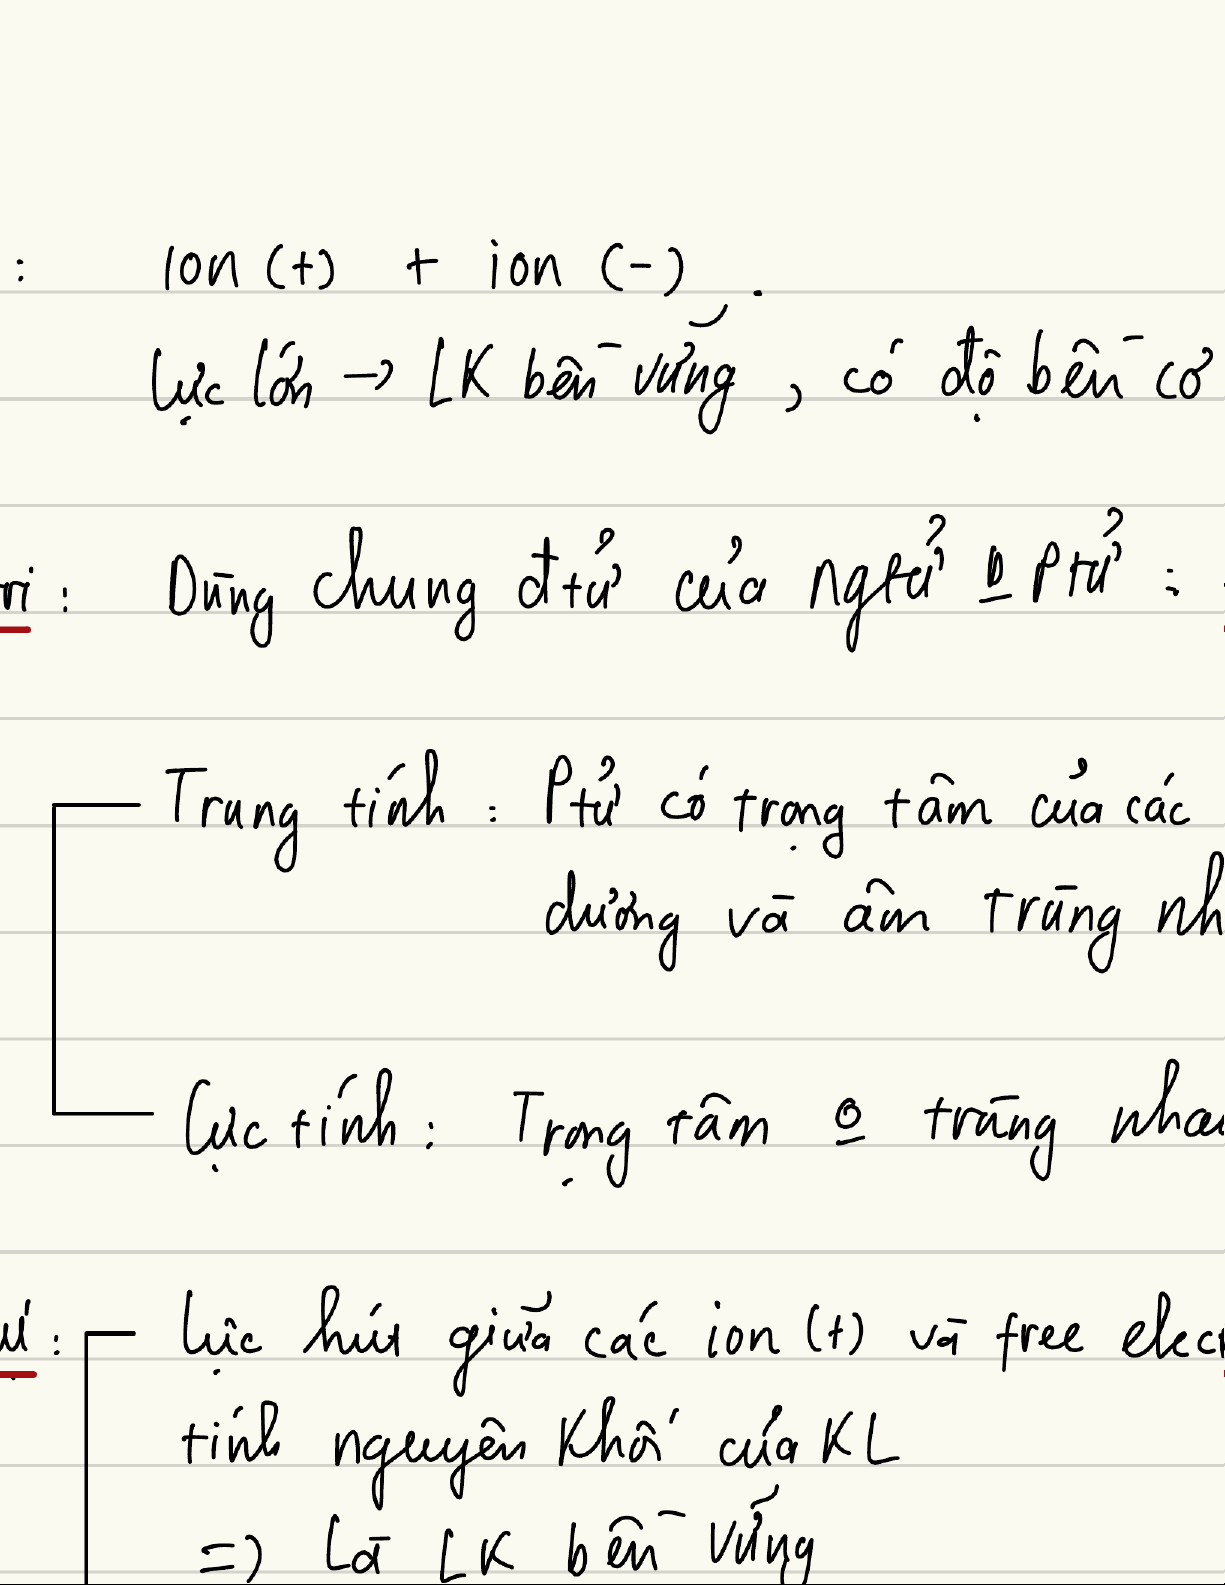 : ion (+) + ion (-).
Lực lớn → LK bền vững, có độ bền cơ
Dùng chung đtử của ngtử Ptử :
Trung tính : Ptử có trọng tâm của các
dương và âm trùng
Cực tính : Trọng tâm trùng
Lực hút giữa các ion (+) và free
tính nguyên khối của KL
=) Là LK bền vững